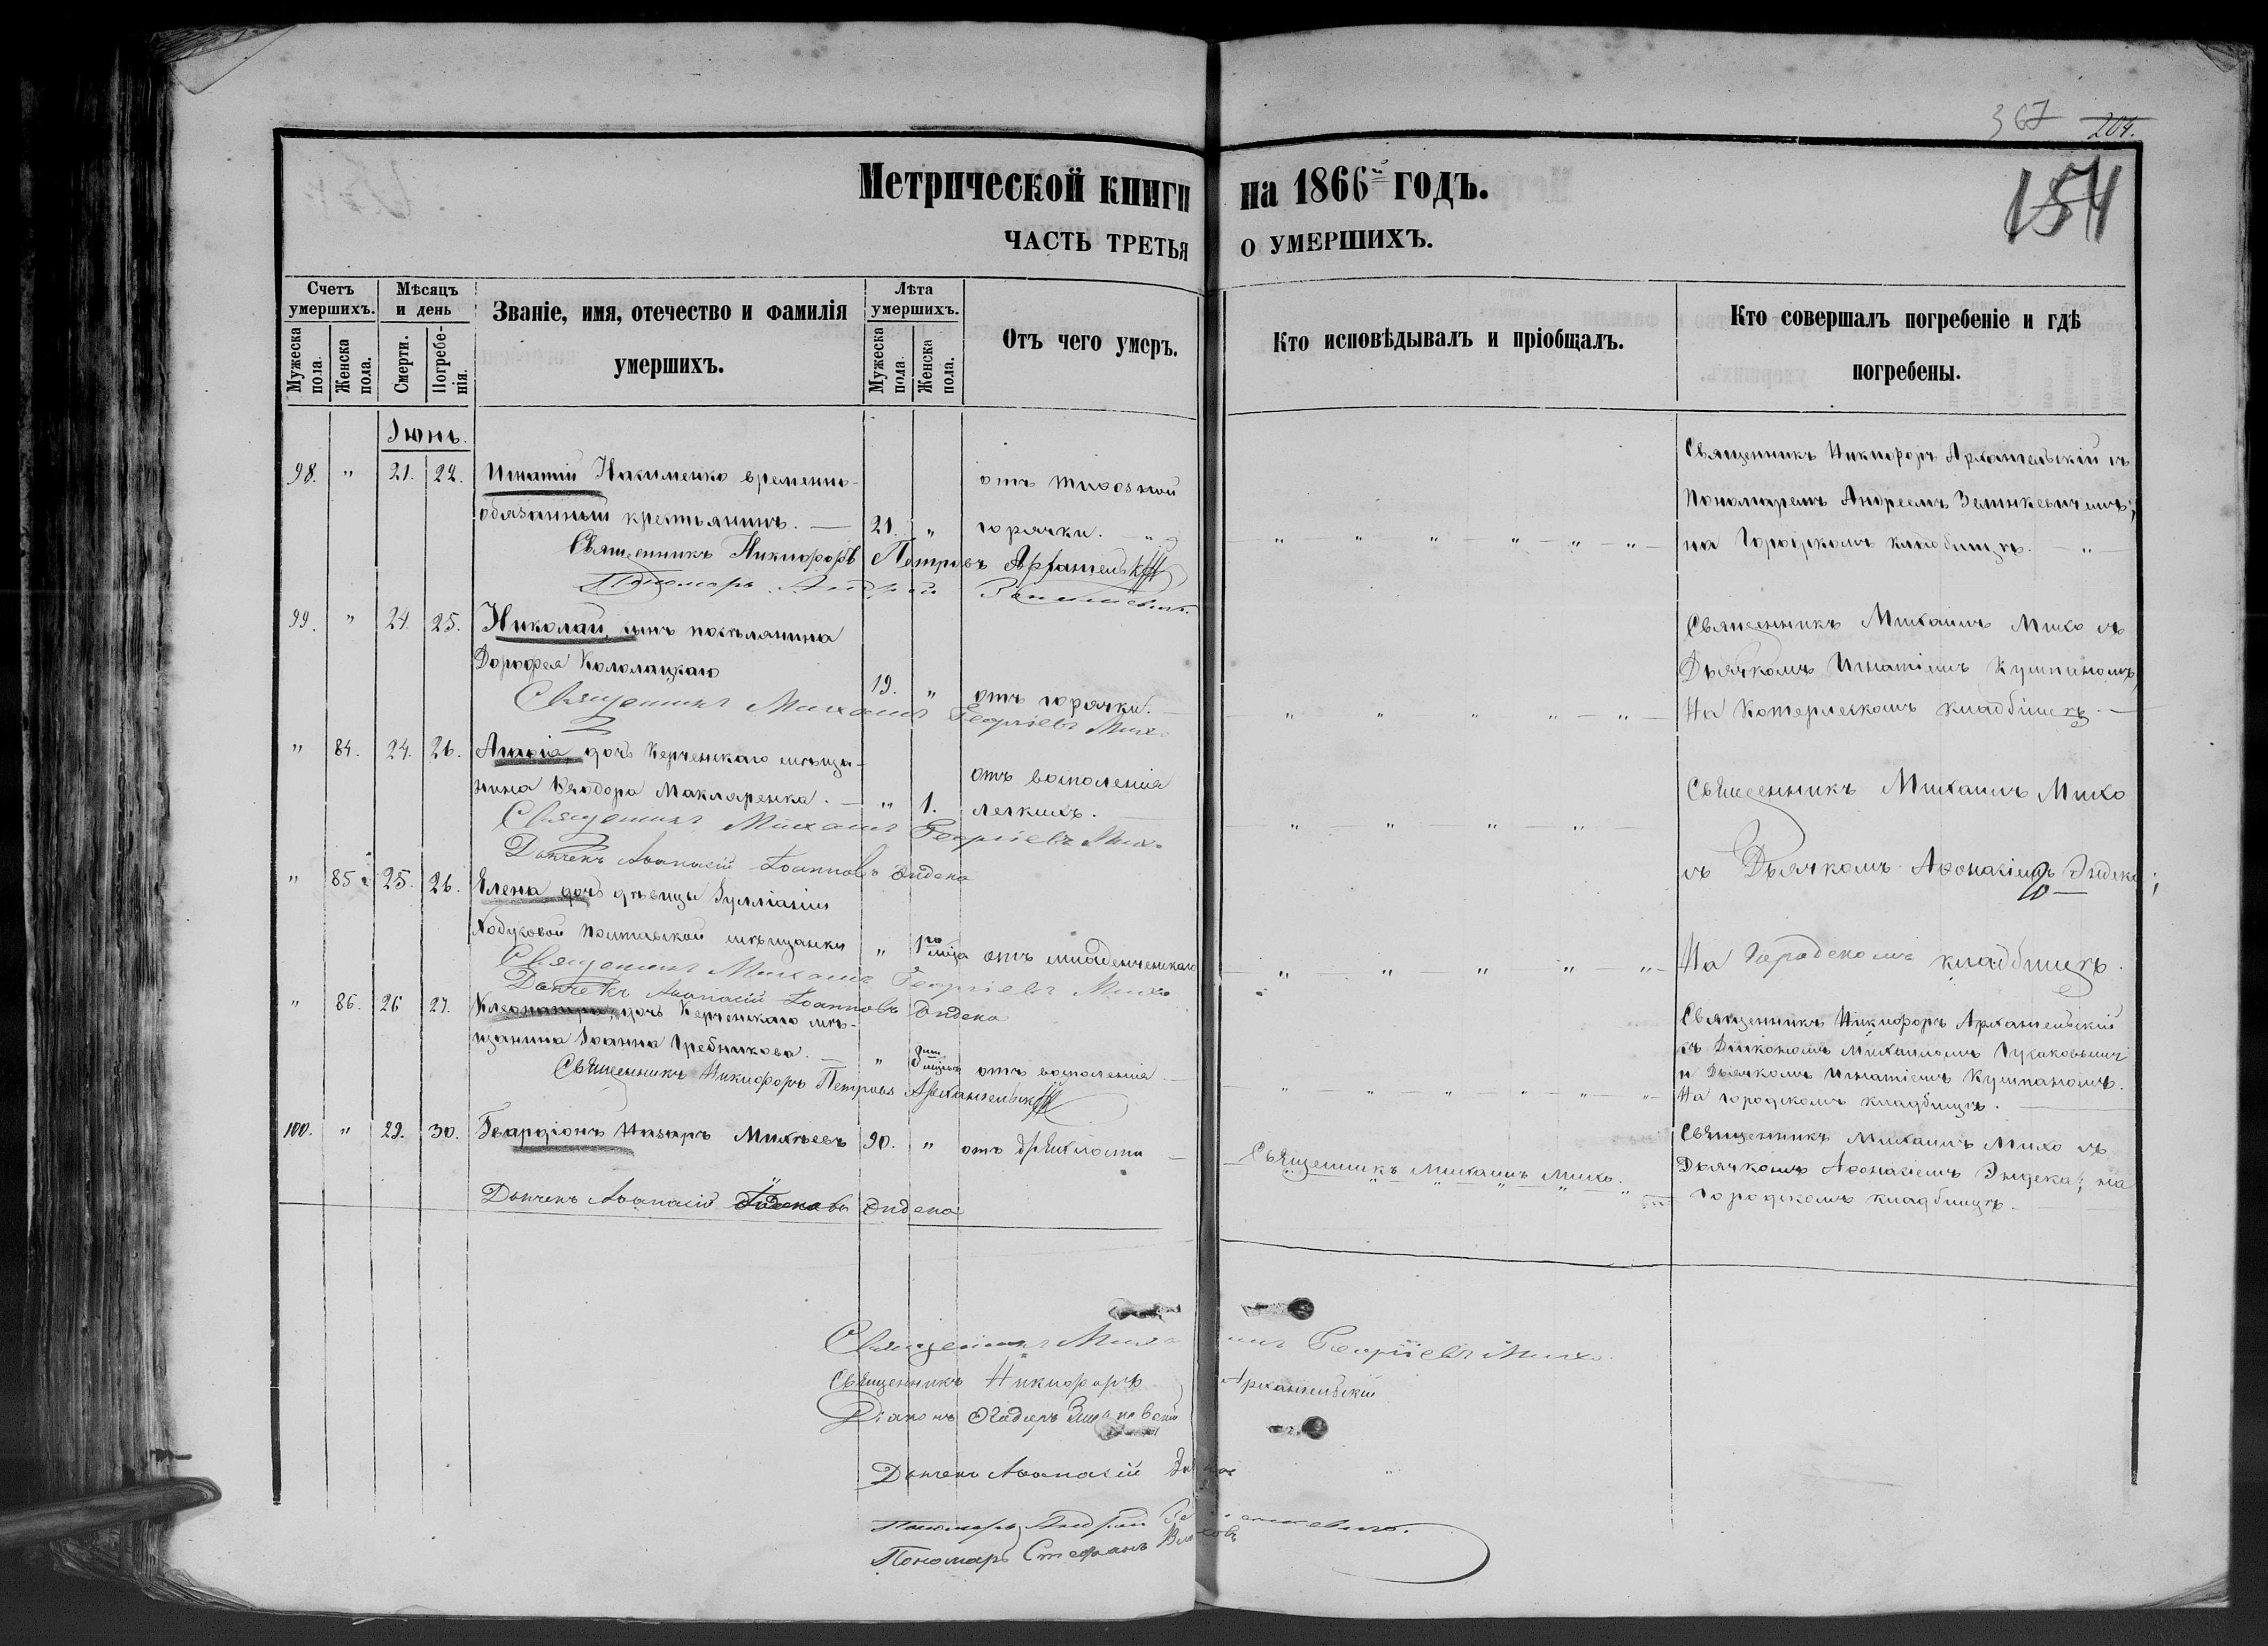 367 204.
154
Метрической книги на 1866й годъ.
ЧАСТЬ ТРЕТЬЯ О УМЕРШИХЪ.
Счетъ умершихъ.
Мужеска пола.
Женска пола.
Мѣсяцъ и день
Смерти.
Погребенія.
Званіе, имя, отечество и фамилія умершихъ.
Лѣта умершихъ.
Мужеска пола
Женска пола.
Отъ чего умеръ.
Кто исповѣдывалъ и пріобщалъ.
Кто совершалъ погребеніе и гдѣ погребены.
Іюнь.
98. " 21. 22. Игнатій Якименко временно-
обязанный крестьянинъ. — 21. "
отъ тифозной
горячки.
Священникъ Никифоръ Архангельскій съ
Пономаремъ Андреемъ
на Городскомъ кладбищѣ. — " —
Священникъ Никифоръ Петровъ Архангельскій
Пономарь Андрей
99. " 24. 25. Николай, сынъ поселянина
Дорофея 19. " отъ горячки. —
Священникъ Михаилъ Михо съ
Дьячкомъ Игнатіемъ Куппаномъ,
На кладбищѣ. —
Священникъ Михаилъ Георгіевъ Михо
" 84. 24. 26. дочь Керченскаго мѣща-
нина Ѳеодора Макляренка. — " 1.
отъ воспаленія
легкихъ.
Священникъ Михаилъ Михо
съ Дьячкомъ Афонасіемъ Эндека;
На Городскомъ кладбищѣ.
Священникъ Михаилъ Георгіевъ Михо
Дьячекъ Аѳанасій Іоанновъ Эндека
" 85 25. 26. Елена дочь дѣвицы Іулліаніи
мѣщанки " 1го мѣца отъ младенческаго
Священникъ Михаилъ Георгіевъ Михо
Дьячекъ Аѳанасій Іоанновъ Эндека
" 86. 26 27. Клеопатра, дочь Керченскаго мѣ-
щанина Іоанна Гребникова. — " отъ воспаленія —
Священникъ Никифоръ Архангельскій
съ Діакономъ Михаиломъ
и Дьячкомъ Игнатіемъ Куппаномъ.
На городскомъ кладбищѣ. —
Священникъ Никифоръ Петровъ Архангельскій
100. " 29. 30. Назаръ Михѣевъ 90. " отъ дряхлости —
Священникъ Михаилъ Михо.
Священникъ Михаилъ Михо съ
Дьячкомъ Афонасіемъ Эндека; на
Городскомъ кладбищѣ.
Дьячекъ Аѳанасій Эндека
Священникъ Михаилъ Георгіевъ Михо
Священникъ Никифоръ Архангельскій
Діаконъ
Дьячекъ Аѳанасій Эндека
Пономарь Андрей
Пономарь Стефанъ